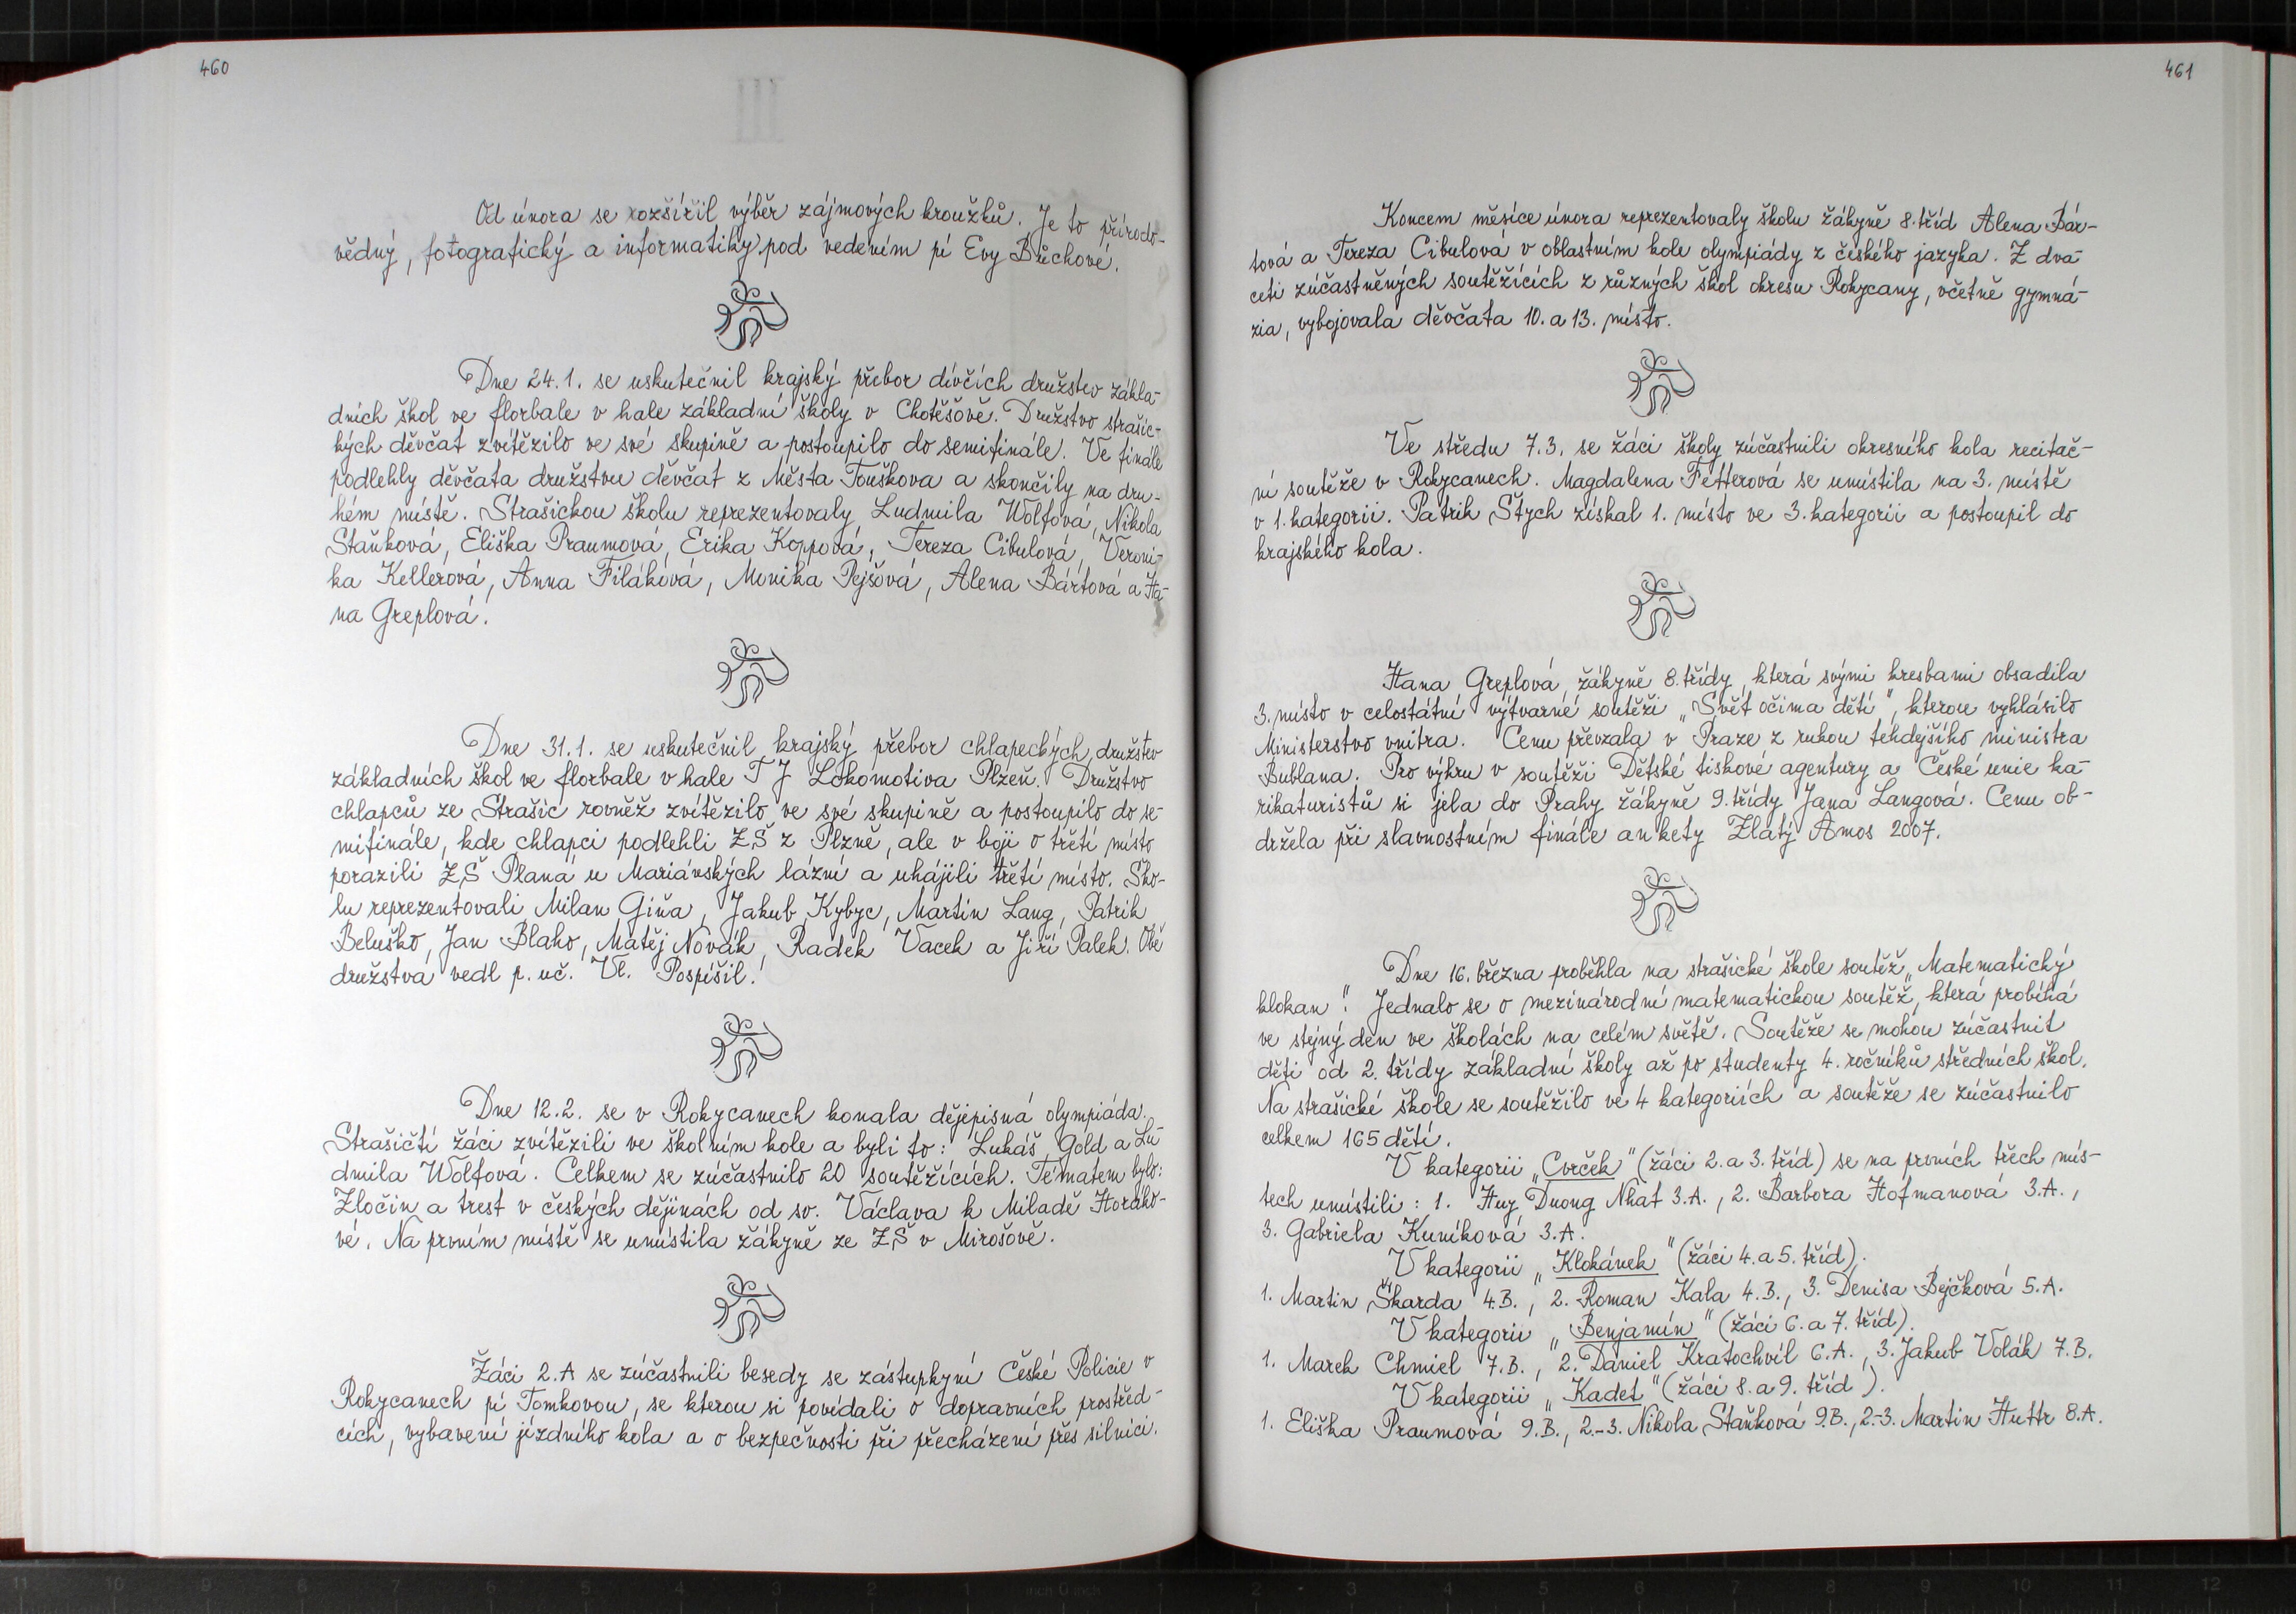 460
Od února se rozšířil výběr zájmových kroužků. Je to přírodo-
vědný, fotografický a informatiky pod vedením pí Evy Bůchové.
Dne 24.1. se uskutečnil krajský přebor dívčích družstev zákla-
dních škol ve florbale v hale základní školy v Chotěšově. Družstvo strašic-
kých děvčat zvítězilo ve své skupině a postoupilo do semifinále. Ve finále
podlehly děvčata družstvu děvčat z Města Touškova a skončily na dru-
hém místě. Strašickou školu reprezentovaly Ludmila Wolfová, Nikola
Staňková, Eliška Praumová, Erika Koppová, Tereza Cibulová, Veroni-
ka Kellerová, Anna Filáková, Monika Pejšová, Alena Bártová a Ha-
na Greplová.
Dne 31.1. se uskutečnil krajský přebor chlapeckých družstev
základních škol ve florbale v hale TJ Lokomotiva Plzeň. Družstvo
chlapců ze Strašic rovněž zvítězilo ve své skupině a postoupilo do se-
mifinále, kde chlapci podlehli ZŠ z Plzně, ale v boji o třetí místo
porazili ZŠ Planá u Mariánských lázní a uhájili třetí místo. Ško-
lu reprezentovali Milan Giňa, Jakub Kybyc, Martin Lang, Patrik
Beluško, Jan Blaho, Matěj Novák, Radek Vacek a Jiří Palek. Obě
družstva vedl p. uč. Vl. Pospíšil.
Dne 12.2. se v Rokycanech konala dějepisná olympiáda.
Strašičtí žáci zvítězili ve školním kole a byli to: Lukáš Gold a Lu-
dmila Wolfová. Celkem se zúčastnilo 20 soutěžících. Tématem bylo:
Zločin a trest v českých dějinách od sv. Václava k Miladě Horáko-
vé. Na prvním místě se umístila žákyně ze ZŠ v Mirošově.
Žáci 2.A se zúčastnili besedy se zástupkyní České Policie v
Rokycanech pí Tomkovou, se kterou si povídali o dopravních prostřed-
cích, vybavení jízdního kola a o bezpečnosti při přecházení přes silnici.
461
Koncem měsíce února reprezentovaly školu žákyně 8. tříd Alena Bár-
tová a Tereza Cibulová v oblastním kole olympiády z českého jazyka. Z dva-
ceti zúčastněných soutěžících z různých škol okresu Rokycany, včetně gymná-
zia, vybojovala děvčata 10. a 13. místo.
Ve středu 7.3. se žáci školy zúčastnili okresního kola recitač-
ní soutěže v Rokycanech. Magdalena Fetterová se umístila na 3. místě
v 1. kategorii. Patrik Štych získal 1. místo ve 3. kategorii a postoupil do
krajského kola.
Hana Greplová, žákyně 8. třídy, která svými kresbami obsadila
3. místo v celostátní výtvarné soutěži „Svět očima dětí", kterou vyhlásilo
Ministerstvo vnitra. Cenu převzala v Praze z rukou tehdejšího ministra
Bublana. Pro výhru v soutěži Dětské tiskové agentury a České unie ka-
rikaturistů si jela do Prahy žákyně 9. třídy Jana Langová. Cenu ob-
držela při slavnostním finále ankety Zlatý Ámos 2007.
Dne 16. března proběhla na strašické škole soutěž „Matematický
klokan". Jednalo se o mezinárodní matematickou soutěž, která probíhá
ve stejný den ve školách na celém světě. Soutěže se mohou zúčastnit
děti od 2. třídy základní školy až po studenty 4. ročníků středních škol.
Na strašické škole se soutěžilo ve 4 kategoriích a soutěže se zúčastnilo
celkem 165 dětí.
V kategorii „Cvrček" (žáci 2. a 3. tříd) se na prvních třech mís-
tech umístili: 1. Huy Duong Nhat 3.A., 2. Barbora Hofmanová 3.A.,
3. Gabriela Kuníková 3.A.
V kategorii „Klokánek" (žáci 4. a 5. tříd).
1. Martin Škarda 4.B., 2. Roman Kala 4.B., 3. Denisa Bejčková 5.A.
V kategorii „Benjamín" (žáci 6. a 7. tříd).
1. Marek Chmiel 7.B., 2. Daniel Kratochvíl 6.A., 3. Jakub Volák 7.B.
V kategorii „Kadet" (žáci 8. a 9. tříd).
1. Eliška Praumová 9.B., 2.-3. Nikola Staňková 9.B., 2.-3. Martin Huttr 8.A.